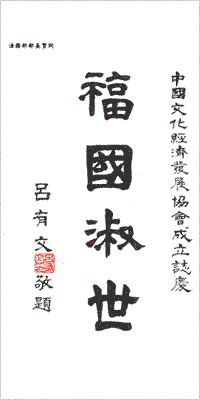 中國文化經濟發展協會成立誌慶
福國淑世
呂有文敬題
法務部部長賀詞